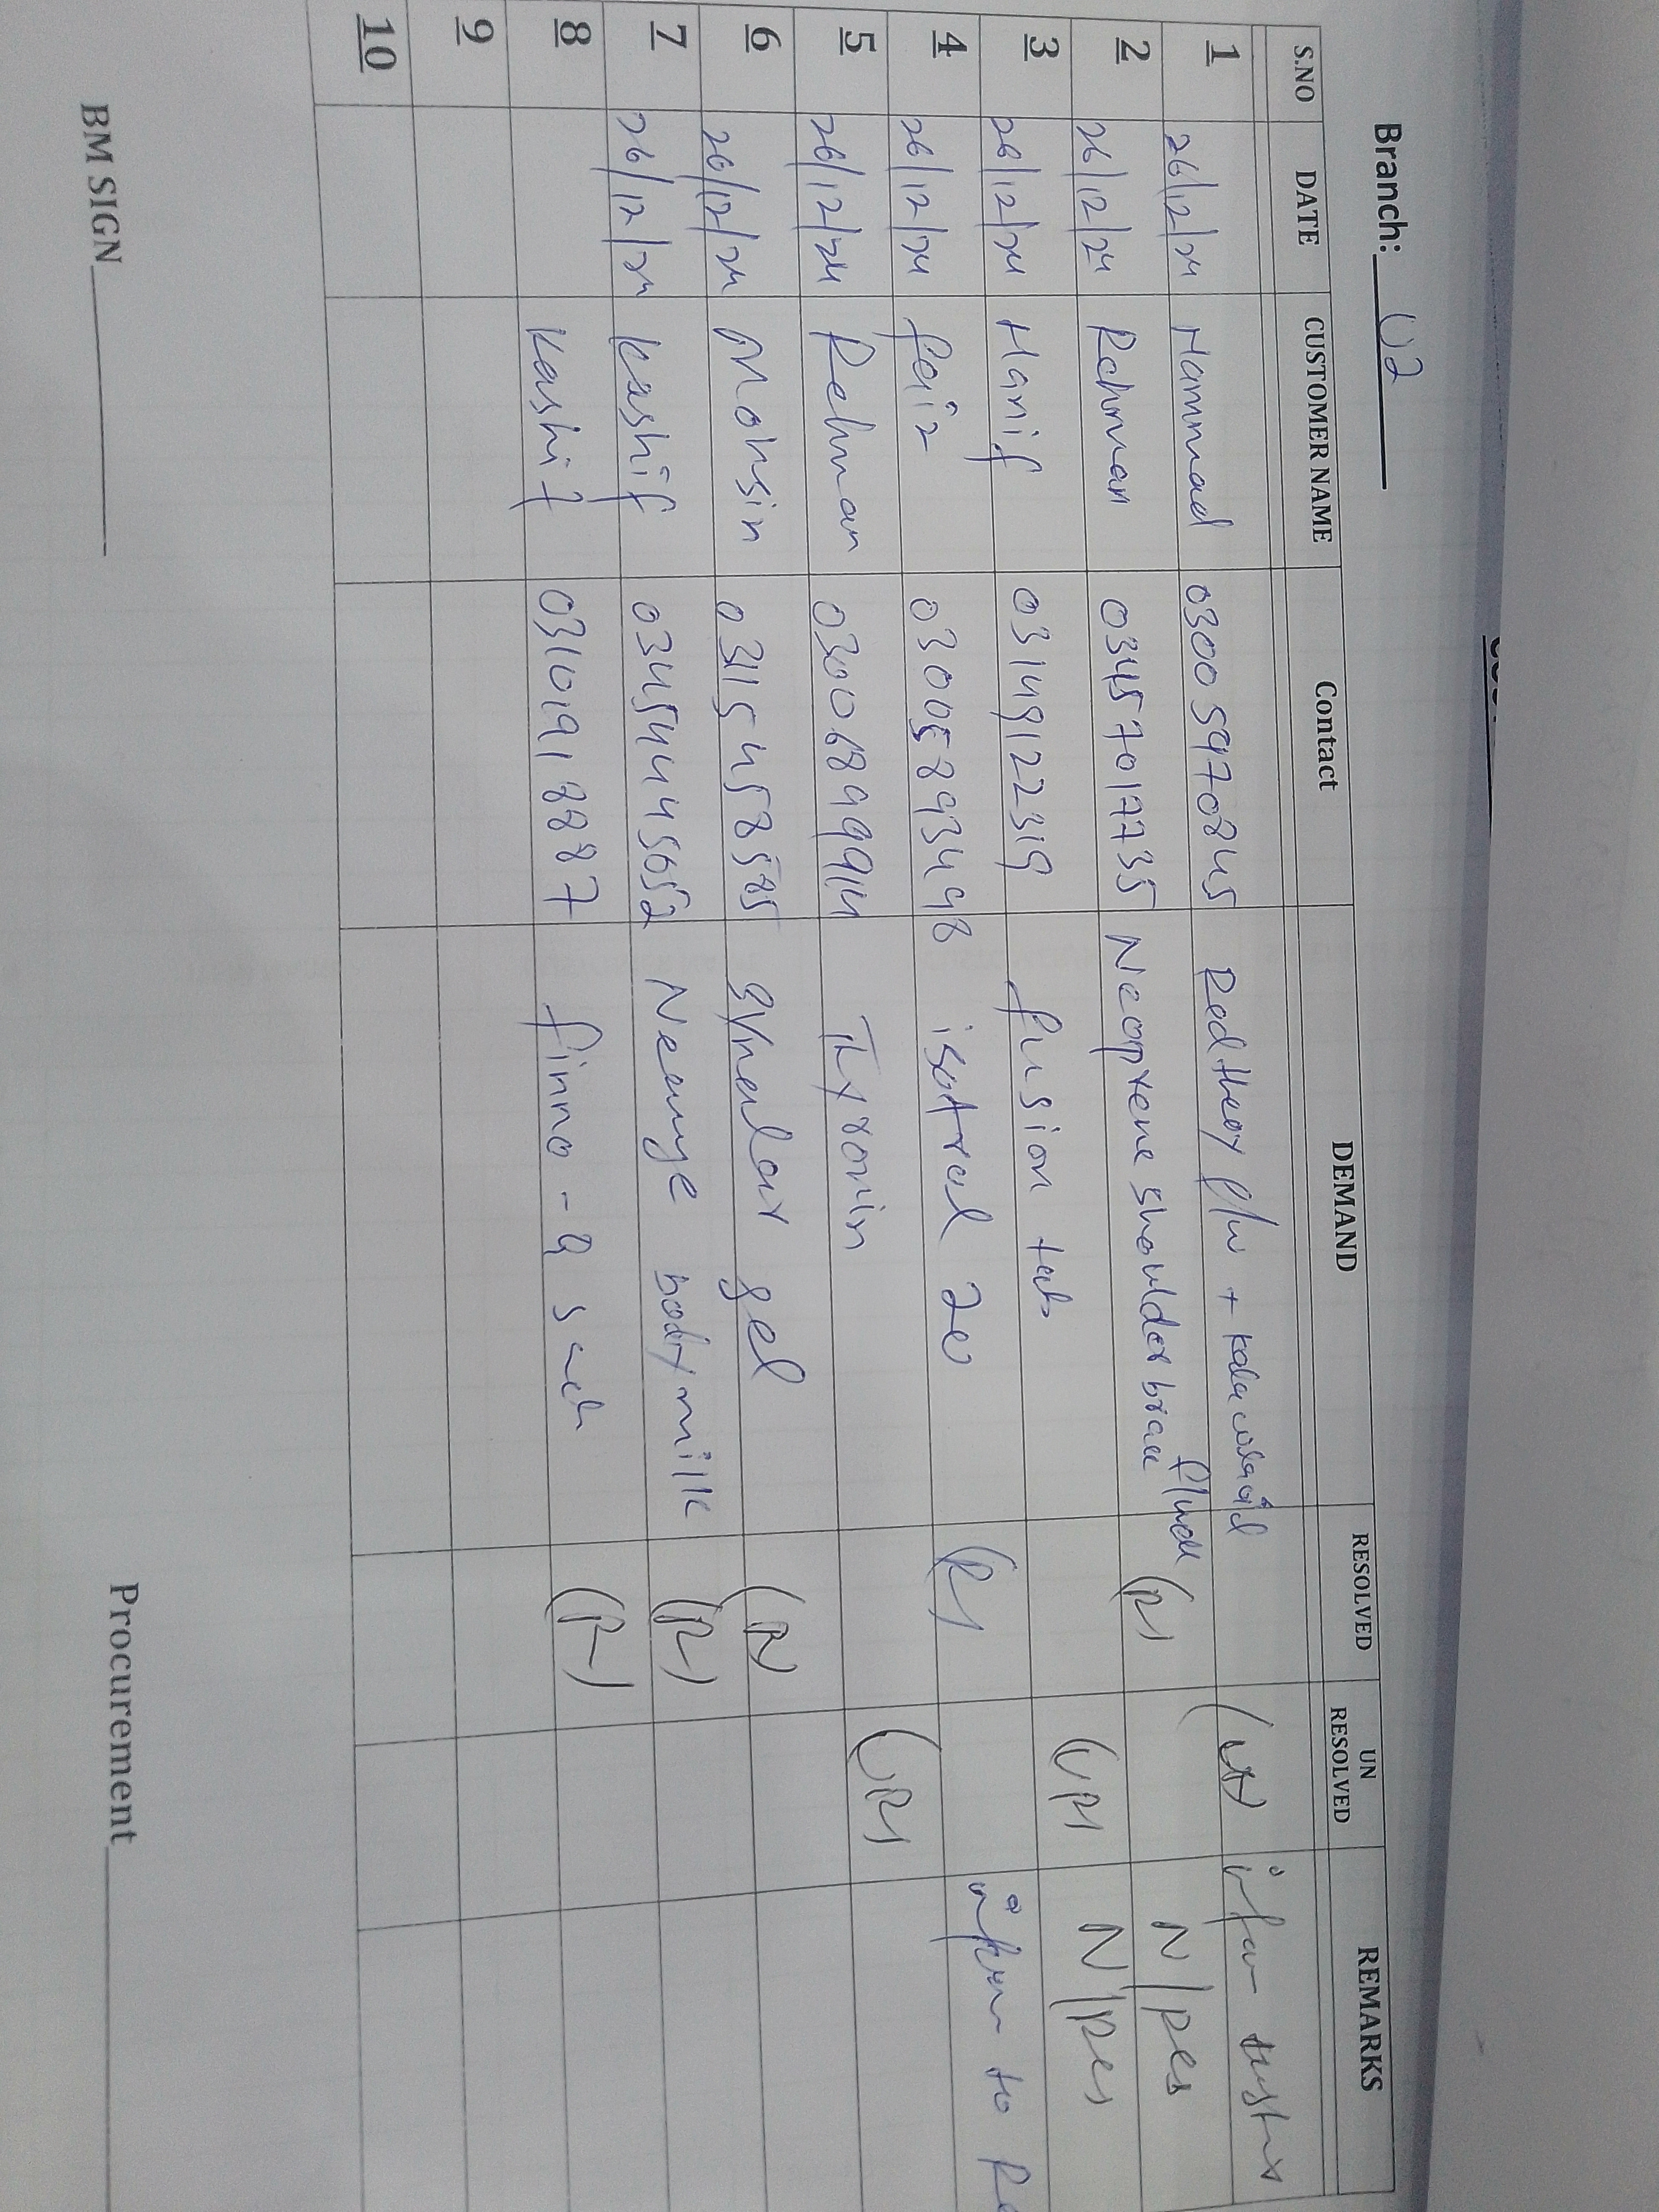 Branch: 02
S.NO DATE CUSTOMER NAME Contact DEMAND RESOLVED UN RESOLVED REMARKS
1 26/12/24 Hammad 03005970845
2 26/12/24 Rehman 03457017735 Neoprene shoulder brace (R) N/Res
3 26/12/24 Hanif 03149122319 fusion tab (UR) N/Res
4 26/12/24 faiz 03005893498 isotral 20 (R) to
5 26/12/24 Rehman 03006899914 Thyronin (UR)
6 26/12/24 Mohsin 03115458585 gel (R)
7 26/12/24 Kashif 03454445652 body milk (R)
8 Kashif 03101918887 finno-q sach (R)
9
10
BM SIGN Procurement